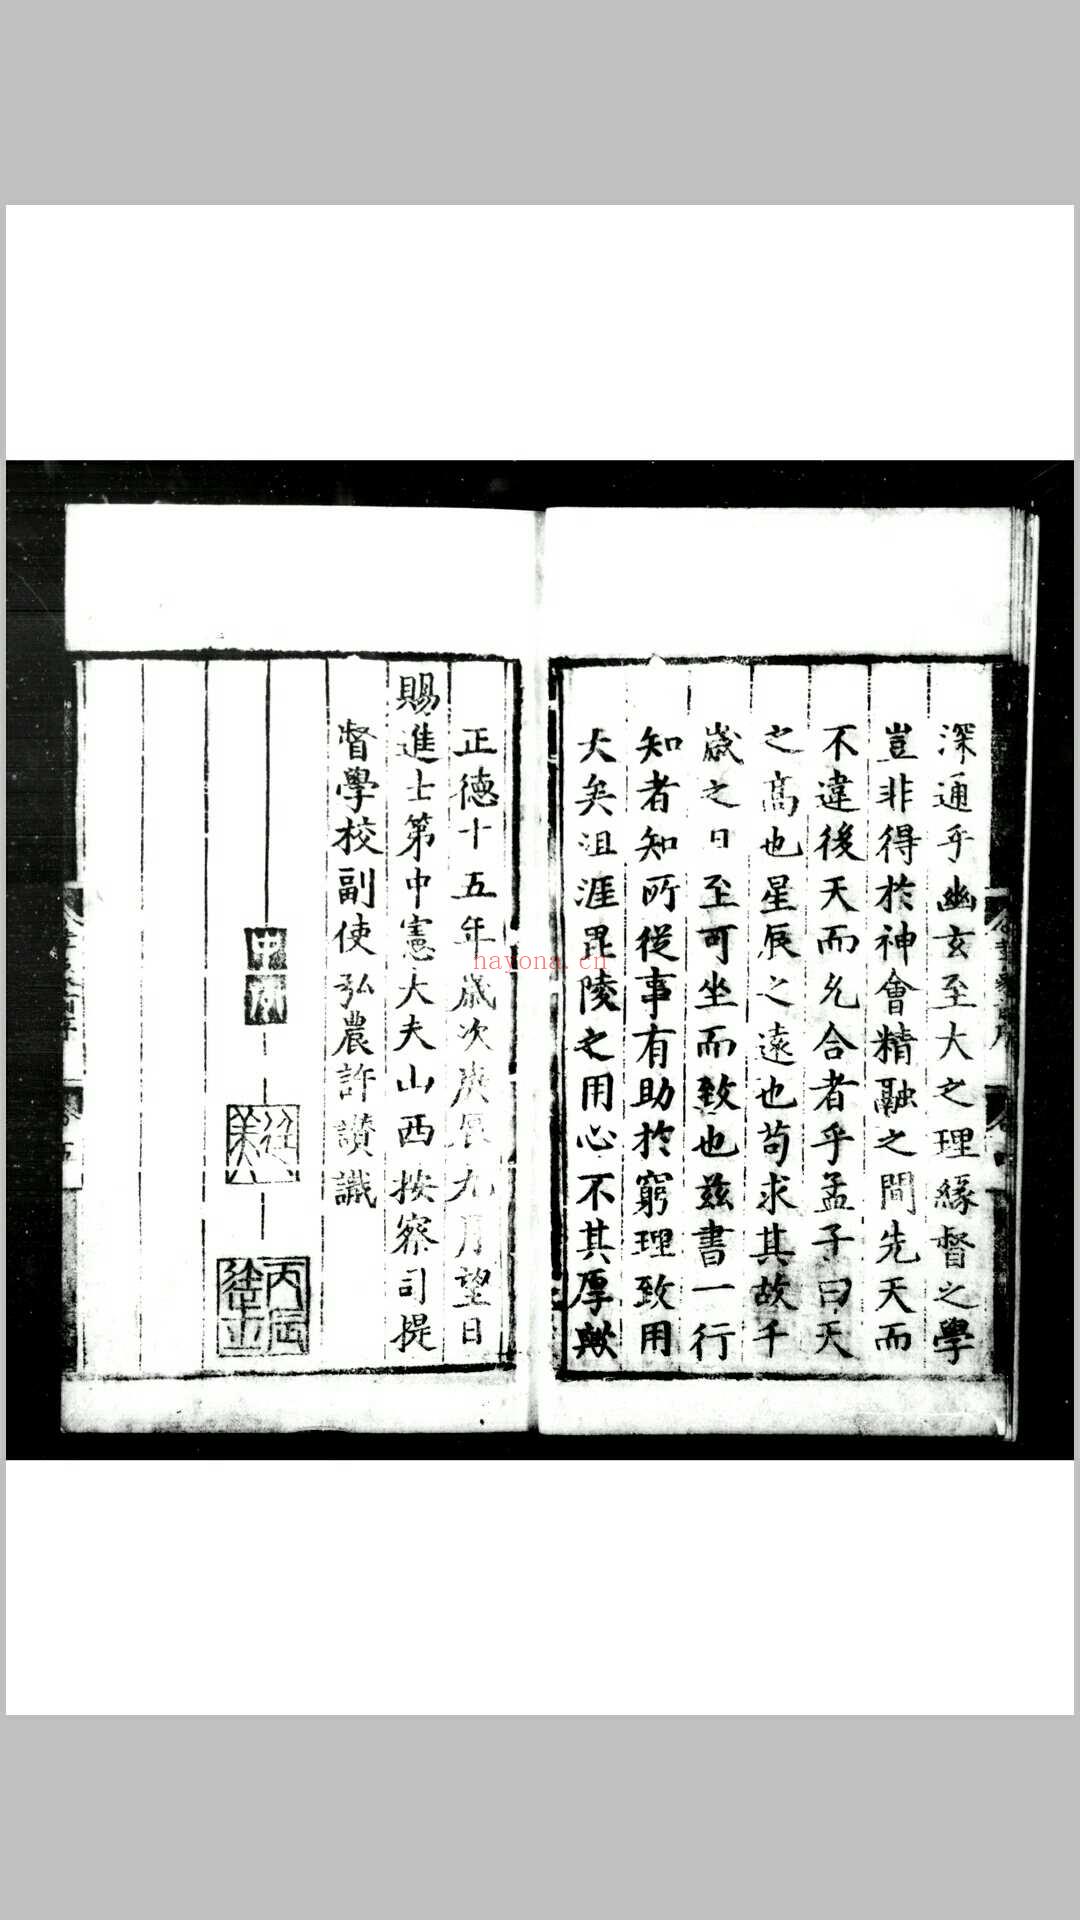 深通乎幽玄至大之理緣督之學
豈非得於神會精融之間先天而
不違後天而允合者乎孟子曰天
之高也星辰之遠也苟求其故千
歲之日至可坐而致也茲書一行
知者知所從事有助於窮理致用
大矣沮涯毘陵之用心不其厚歟
正德十五年歲次庚辰九月望日
賜進士第中憲大夫山西按察司提
督學校副使弘農許讃識
丙辰進士
hayona.cn